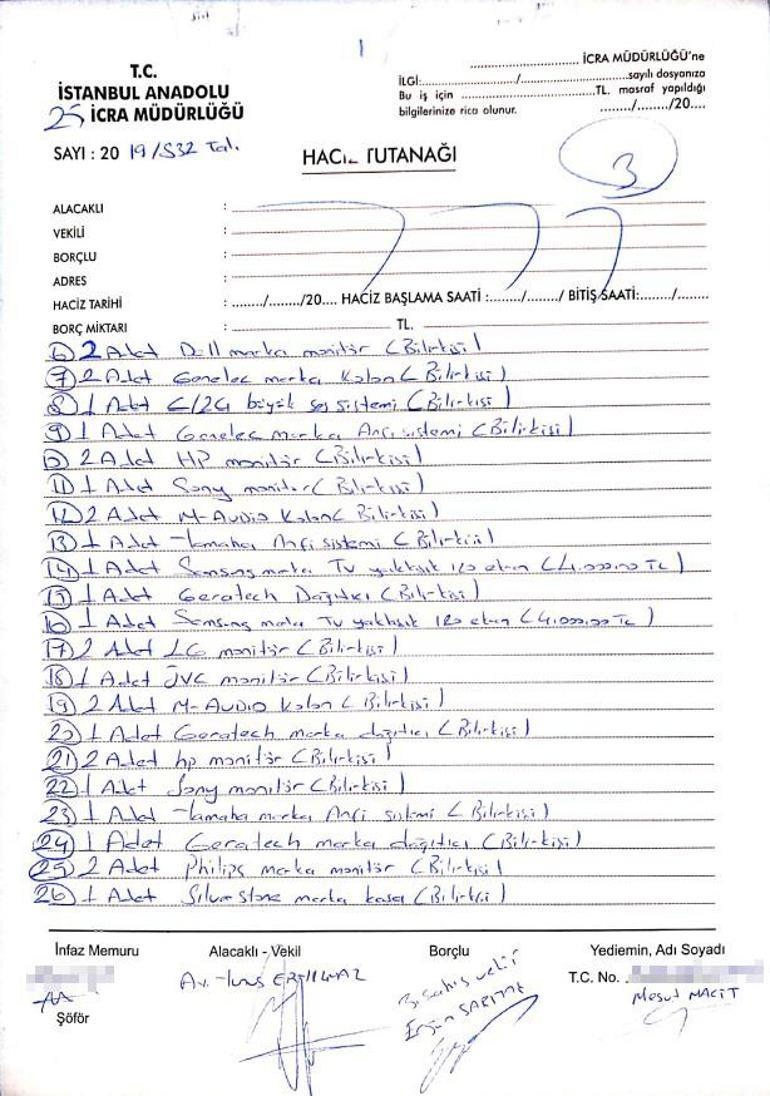 T.C.
İSTANBUL ANADOLU
25 İCRA MÜDÜRLÜĞÜ
SAYI : 20 19/532 Tal.
İCRA MÜDÜRLÜĞÜ'ne
İLGİ:............/............sayılı dosyanıza
Bu iş için ............TL. masraf yapıldığı
bilgilerinize rica olunur. ......../......../20....
HACİZ TUTANAĞI
3
ALACAKLI :
VEKİLİ :
BORÇLU :
ADRES :
HACİZ TARİHİ : ......../......../20.... HACİZ BAŞLAMA SAATİ :......../......../ BİTİŞ SAATİ:......../........
BORÇ MİKTARI : TL.
6 2 Adet Dell marka monitör (Bilirkişi)
7 2 Adet Genelec marka Kolon (Bilirkişi)
8 1 Adet büyük ses sistemi (Bilirkişi)
9 1 Adet Genelec marka Anfi sistemi (Bilirkişi)
10 2 Adet HP monitör (Bilirkişi)
11 1 Adet Sony monitör (Bilirkişi)
12 2 Adet M-AUDIO Kolon (Bilirkişi)
13 1 Adet Yamaha Anfi sistemi (Bilirkişi)
14 1 Adet Samsung marka TV yaklaşık 120 ekran (4.000.00 TL)
15 1 Adet Geratech Dağıtıcı (Bilirkişi)
16 1 Adet Samsung marka TV yaklaşık 120 ekran (4.000.00 TL)
17 2 Adet LG monitör (Bilirkişi)
18 1 Adet JVC monitör (Bilirkişi)
19 2 Adet M-AUDIO Kolon (Bilirkişi)
20 1 Adet Geratech marka dağıtıcı (Bilirkişi)
21 2 Adet hp monitör (Bilirkişi)
22 1 Adet Sony monitör (Bilirkişi)
23 1 Adet Yamaha marka Anfi sistemi (Bilirkişi)
24 1 Adet Geratech marka dağıtıcı (Bilirkişi)
25 2 Adet Philips marka monitör (Bilirkişi)
26 1 Adet Silverstone marka kasa (Bilirkişi)
İnfaz Memuru Alacaklı - Vekil Borçlu Yediemin, Adı Soyadı
Av. Yunus T.C. No. .
3. Şahıs vekili
Ergün Mesut MACİT
Şöför